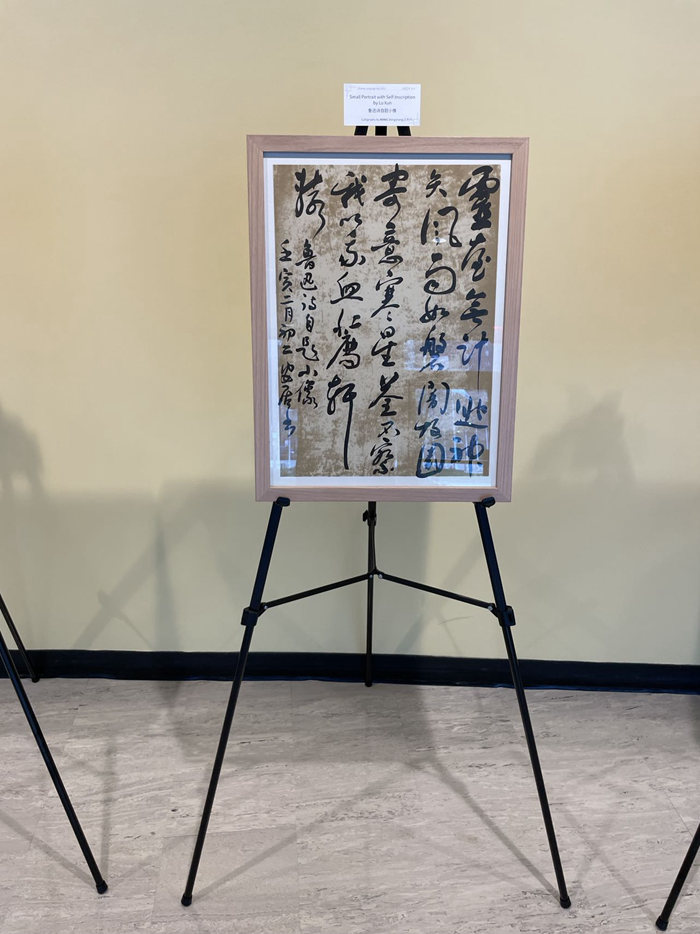 Small Portrait with Self-Inscription
by Lu Xun
鲁迅诗自题小像
Calligraphy by WANG
靈臺無計逃神
矢風雨如磐闇故園
寄意寒星荃不察
我以我血薦軒
轅
魯迅詩自題小像
壬寅二月初二安居书